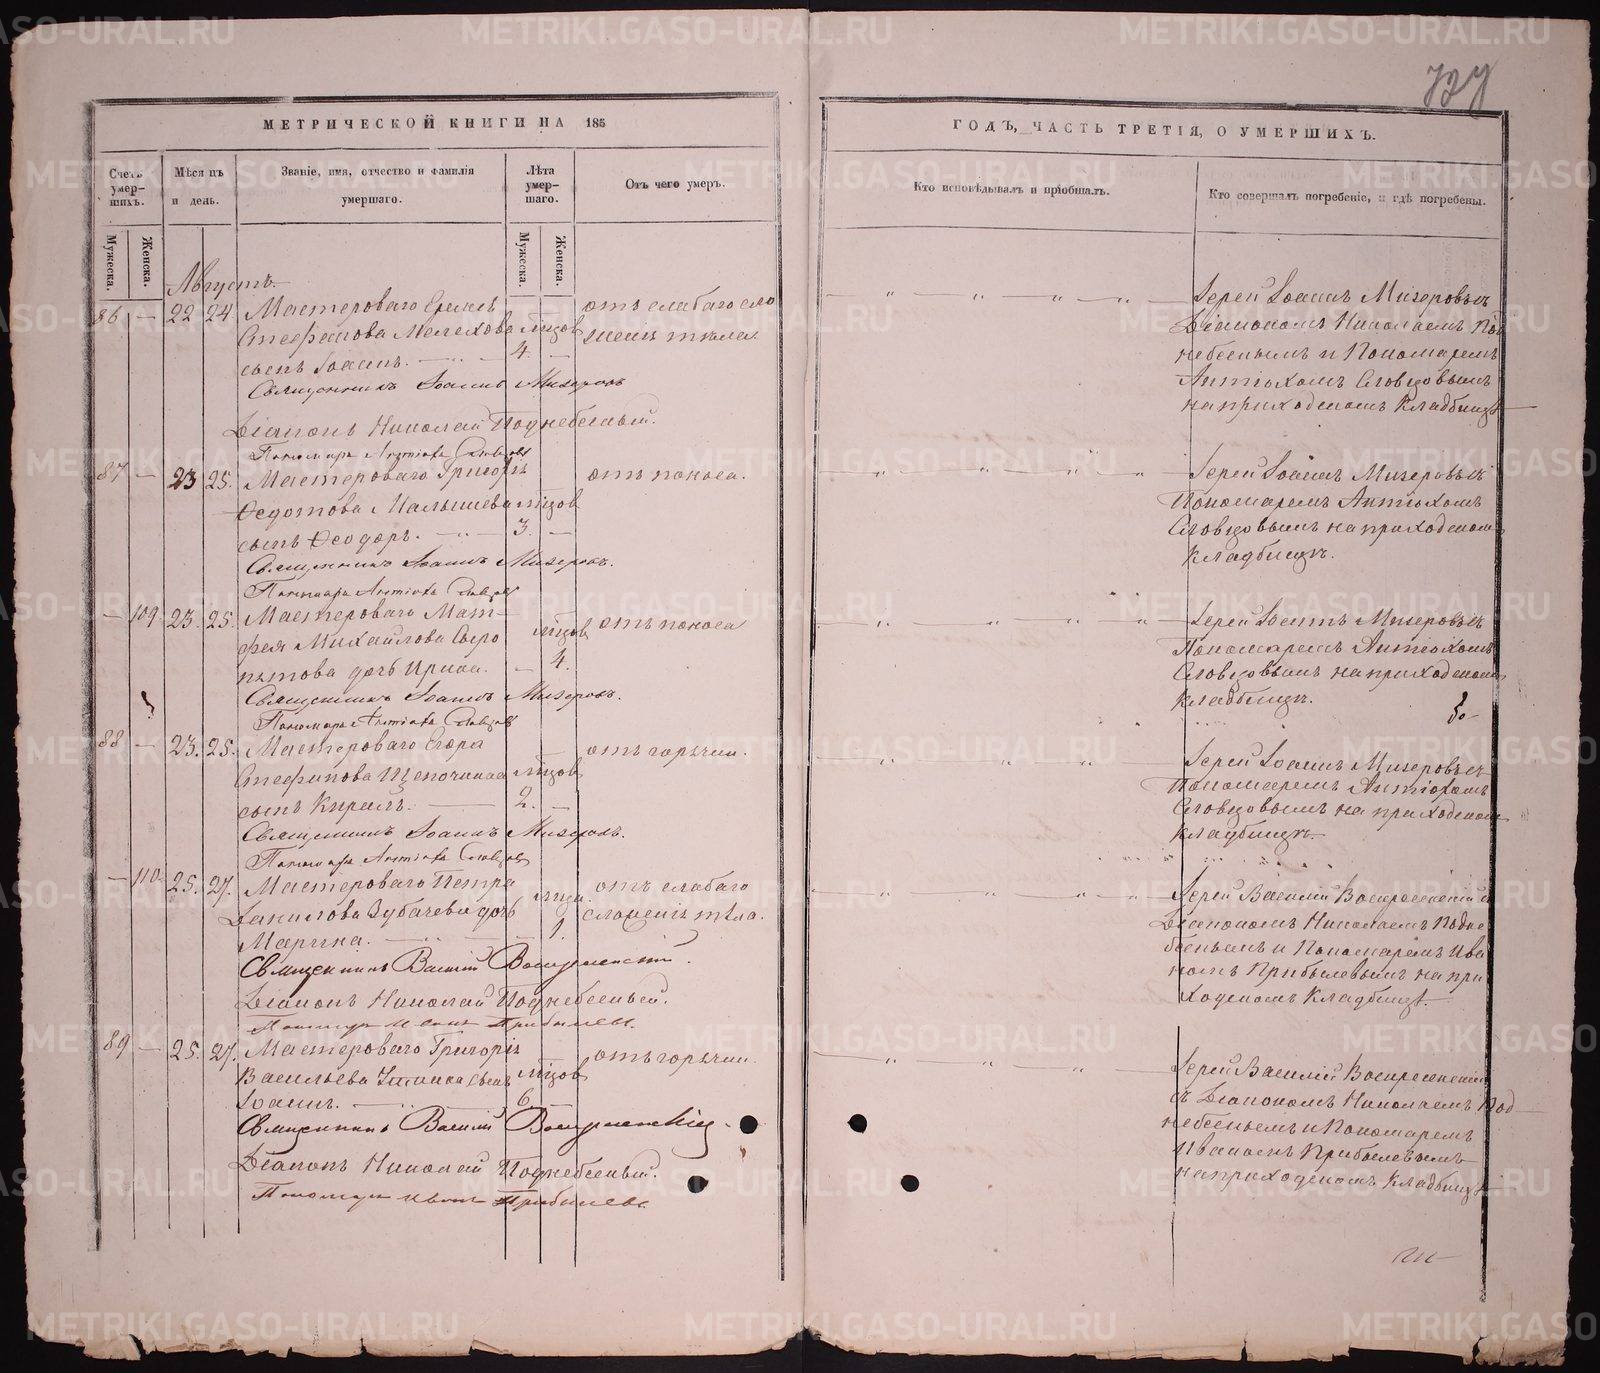 МЕТРИЧЕСКОЙ КНИГИ НА 185
Счетъ умер-шихъ.
Мѣсяцъ и день.
Званіе, имя, отчество и фамилія умершаго.
Лѣта умер-шаго.
Отъ чего умеръ.
Мужеска.
Женска.
Мужеска.
Женска.
Августъ.
86 — 22 24 Мастероваго
Стефанова Мелехова мѣсяцов отъ слабаго сло
сынъ Іоаннъ. 4. — женія тѣла.
Священникъ Іоаннъ Мизеровъ
Діаконъ Николай Поднебесный.
Пономарь Антіохъ Словцовъ
87 — 23 25. Мастероваго Григорья отъ поноса.
Ѳедотова Малышева мѣсяцов
сынъ Ѳеодоръ. 3. —
Священникъ Іоаннъ Мизеровъ.
Пономарь Антіохъ Словцовъ
— 109. 23. 25. Мастероваго Мат-
фея Михайлова Сыро мѣсяцов отъ поноса
пятова дочь Ирина. — 4.
Священникъ Іоаннъ Мизеровъ.
Пономарь Антіохъ Словцовъ
88 — 23. 25. Мастероваго Егора отъ горячки.
Стефанова Щепочкина мѣсяцов
сынъ Кирилъ. 2. —
Священникъ Іоаннъ Мизеровъ.
Пономарь Антіохъ Словцовъ
— 110. 25. 27. Мастероваго Петра отъ слабаго
Данилова Зубачева дочь 1. сложенія тѣла.
Марина.
Священникъ Василій Воскресенскій.
Діаконъ Николай Поднебесный.
Пономарь Иванъ Прибылевъ.
89 — 25. 27. Мастероваго Григорія отъ горячки.
Васильева сынъ мѣсяцов
Іоаннъ. 6. —
Священникъ Василій Воскресенскій.
Діаконъ Николай Поднебесный.
Пономарь Иванъ Прибылевъ.
ГОДЪ, ЧАСТЬ ТРЕТІЯ, О УМЕРШИХЪ.
Кто исповѣдывалъ и пріобщалъ.
Кто совершалъ погребеніе, и гдѣ погребены.
Іерей Іоаннъ Мизеровъ съ
Діакономъ Николаемъ Под
небеснымъ и Пономаремъ
Антіохомъ Словцовымъ
на приходскомъ кладбищѣ
Іерей Іоаннъ Мизеровъ съ
Пономаремъ Антіохомъ
Словцовымъ на приходскомъ
кладбищѣ.
Іерей Іоаннъ Мизеровъ съ
Пономаремъ Антіохомъ
Словцовымъ на приходскомъ
кладбищѣ.
Іерей Іоаннъ Мизеровъ съ
Пономаремъ Антіохомъ
Словцовымъ на приходскомъ
кладбищѣ.
Іерей Василій Воскресенскій съ
Діакономъ Николаемъ Подне
беснымъ и Пономаремъ Ива
номъ Прибылевымъ на при
ходскомъ кладбищѣ.
Іерей Василій Воскресенскій
съ Діакономъ Николаемъ Под
небеснымъ и Пономаремъ
Иваномъ Прибылевымъ
на приходскомъ кладбищѣ
METRIKI.GASO-URAL.RU